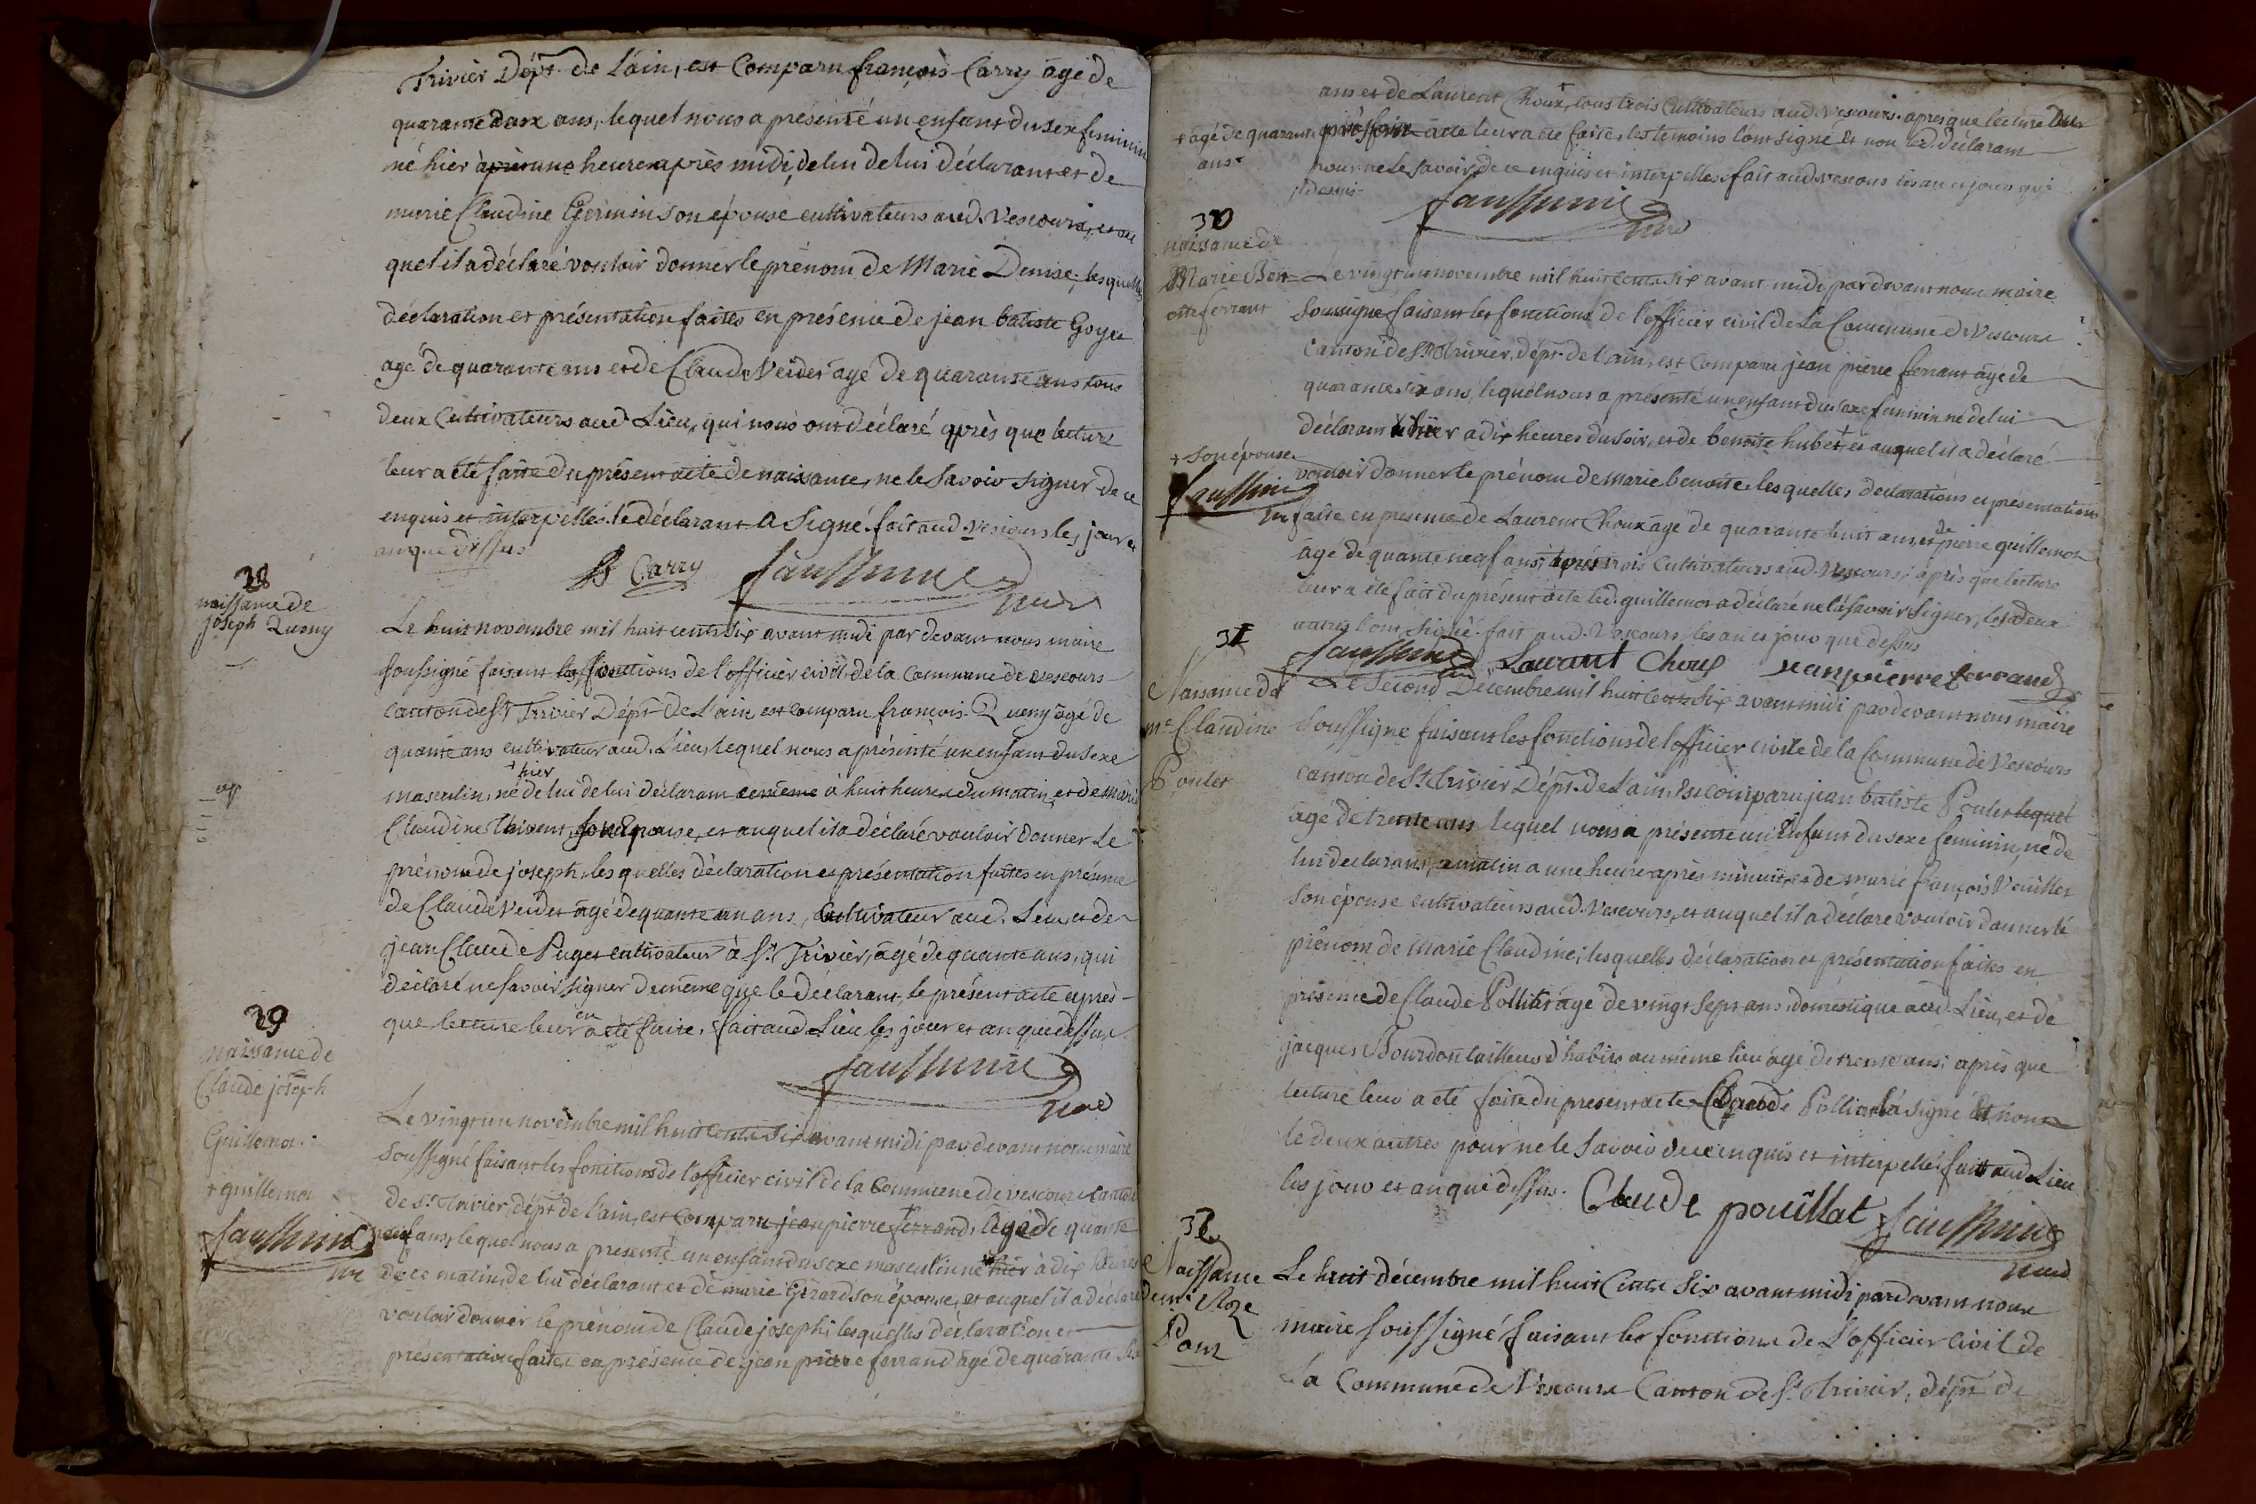 Trivier Dépt. de L'ain, est Comparu françois Carry agé de
quarante deux ans, lequel nous a présenté un enfant du sexe feminin
né hier à une heure après midi, de lui déclarant et de
marie Claudine Germin son épouse cultivateurs aud. Vescours, et au
quel il a déclaré vouloir donner le prénom de Marie Denise, lesquelles
déclaration et présentation faites en présence de jean batiste Goyet
agé de quarante ans et de Claude Veidet agé de quarante ans tous
deux Cultivateurs aud. Lieu, qui nous ont déclaré après que lecture
leur a été faite du présent acte de naissance, ne le savoir signer de ce
enquis et interpellé. le déclarant a signé. fait aud. vescours les jour et
an que dessus
B Carry
maire
28
naissance de
joseph Queny
Le huit novembre mil huit cents six avant midi par devant nous maire
soussigné faisant les fonctions de l'officier civil de la Commune de vescours
canton de St Trivier Dépt. de L'ain est comparu françois Queny agé de
quarante ans cultivateur aud. Lieu, lequel nous a présenté un enfant du sexe
+ hier
masculin, né de lui de lui déclarant à huit heures du matin, et de marie
Claudine Thivent, son Epouse, et auquel il a déclaré vouloir donner Le
prénom de joseph, les quelles déclaration et présentation faites en présence
de Claude Veidet agé de quarante un ans, Cultivateur aud. Lieu, et de
jean Claude Puget cultivateur à St. Trivier, agé de quarante ans, qui
déclaré ne savoir signer de même que le déclarant, le présent acte après
que lecture leur en a été faite. fait aud. Lieu les jour et an que dessus
maire
29
naissance de
Claude joseph
Guillemot
+ guillemot
Le vingt un novembre mil huit cents six avant midi par devant nous maire
soussigné faisant les fonctions de l'officier civil de la Commune de vescours canton
de St. Trivier, dépt. de l'ain, est comparu jean pierre ferrand, agé de quarante
neuf ans, lequel nous a presenté un enfant du sexe masculin né hier à dix heures
de ce matin, de lui déclarant et de marie Gérard son épouse, et auquel il a déclaré
vouloir donner le prénom de Claude joseph, lesquelles déclaration et
presentation faites en présence de jean pierre ferrand agé de quarante six
ans et de Laurent Choux, tous trois Cultivateurs aud. Vescours. après que lecture
+ agé de quarante
ans
acte leur a été faite, les temoins l'ont signé et non led. déclarant
pour ne le savoir de ce enquis et interpellé. fait aud. vescours les an et jour que
dessus
maire
30
naissance de
Marie Ben
oite ferrant
Le vingt un novembre mil huit cents six avant midi par devant nous maire
soussigné faisant les fonctions de l'officier civil de La Commune de Vescours
Canton de St. Trivier, dépt. de l'ain, est comparu jean pierre ferrant agé de
quarante six ans, lequel nous a présenté un enfant du sexe feminin né de lui
déclarant hier a dix heures du soir, et de benoite hubert + et auquel il a déclaré
+ son épouse
vouloir donner le prénom de marie benoite, les quelles déclarations et presentation
faite en presence de Laurent Choux agé de quarante huit ans, et de pierre guillemot
agé de quarante neuf ans, tous trois Cultivateurs aud. vescours, après que lecture
leur a été fait du présent acte led. guillemot a déclaré ne le savoir signer, les deux
autres l'ont signé. fait aud. Vescours, les an et jour que dessus
Lauraut Choup jean pierre ferrand
31
Naissance de
me Claudine
Poulet
Le Second Décembre mil huit cents six avant midi par devant nous maire
soussigné faisant les fonctions de l'officier civile de la Commune de Vescours
canton de St. Trivier Dépt. de L'ain, est comparu jean batiste Poulet lequel
agé de trente ans lequel nous a présenté un Enfant du sexe feminin, né de
lui declarant, ce matin a une heure après minuit, et de marie françois Veuillet
son épouse cultivateurs aud. Vescours, et auquel il a déclaré vouloir donner le
prénom de Marie Claudine, lesquelles déclaration et présentation faites en
présence de Claude Polliat agé de vingt sept ans domestique aud. Lieu, et de
jacques Bourdon tailleur d'habits au même lieu agé de trente ans; après que
lecture leur a été faite du present acte, Claude Polliat l'a signé et non
le deux autres pour ne le savoir de ce enquis et interpellé. fait aud. Lieu
les jour et an que dessus.
Claude poûillat
maire
32
Naissance
de me Roze
Pont
Le huit décembre mil huit Cents Six avant midi par devant nous
maire soussigné faisant les fonctions de L'officier civil de
la Commune de Vescours Canton de St. Trivier, dépt. de